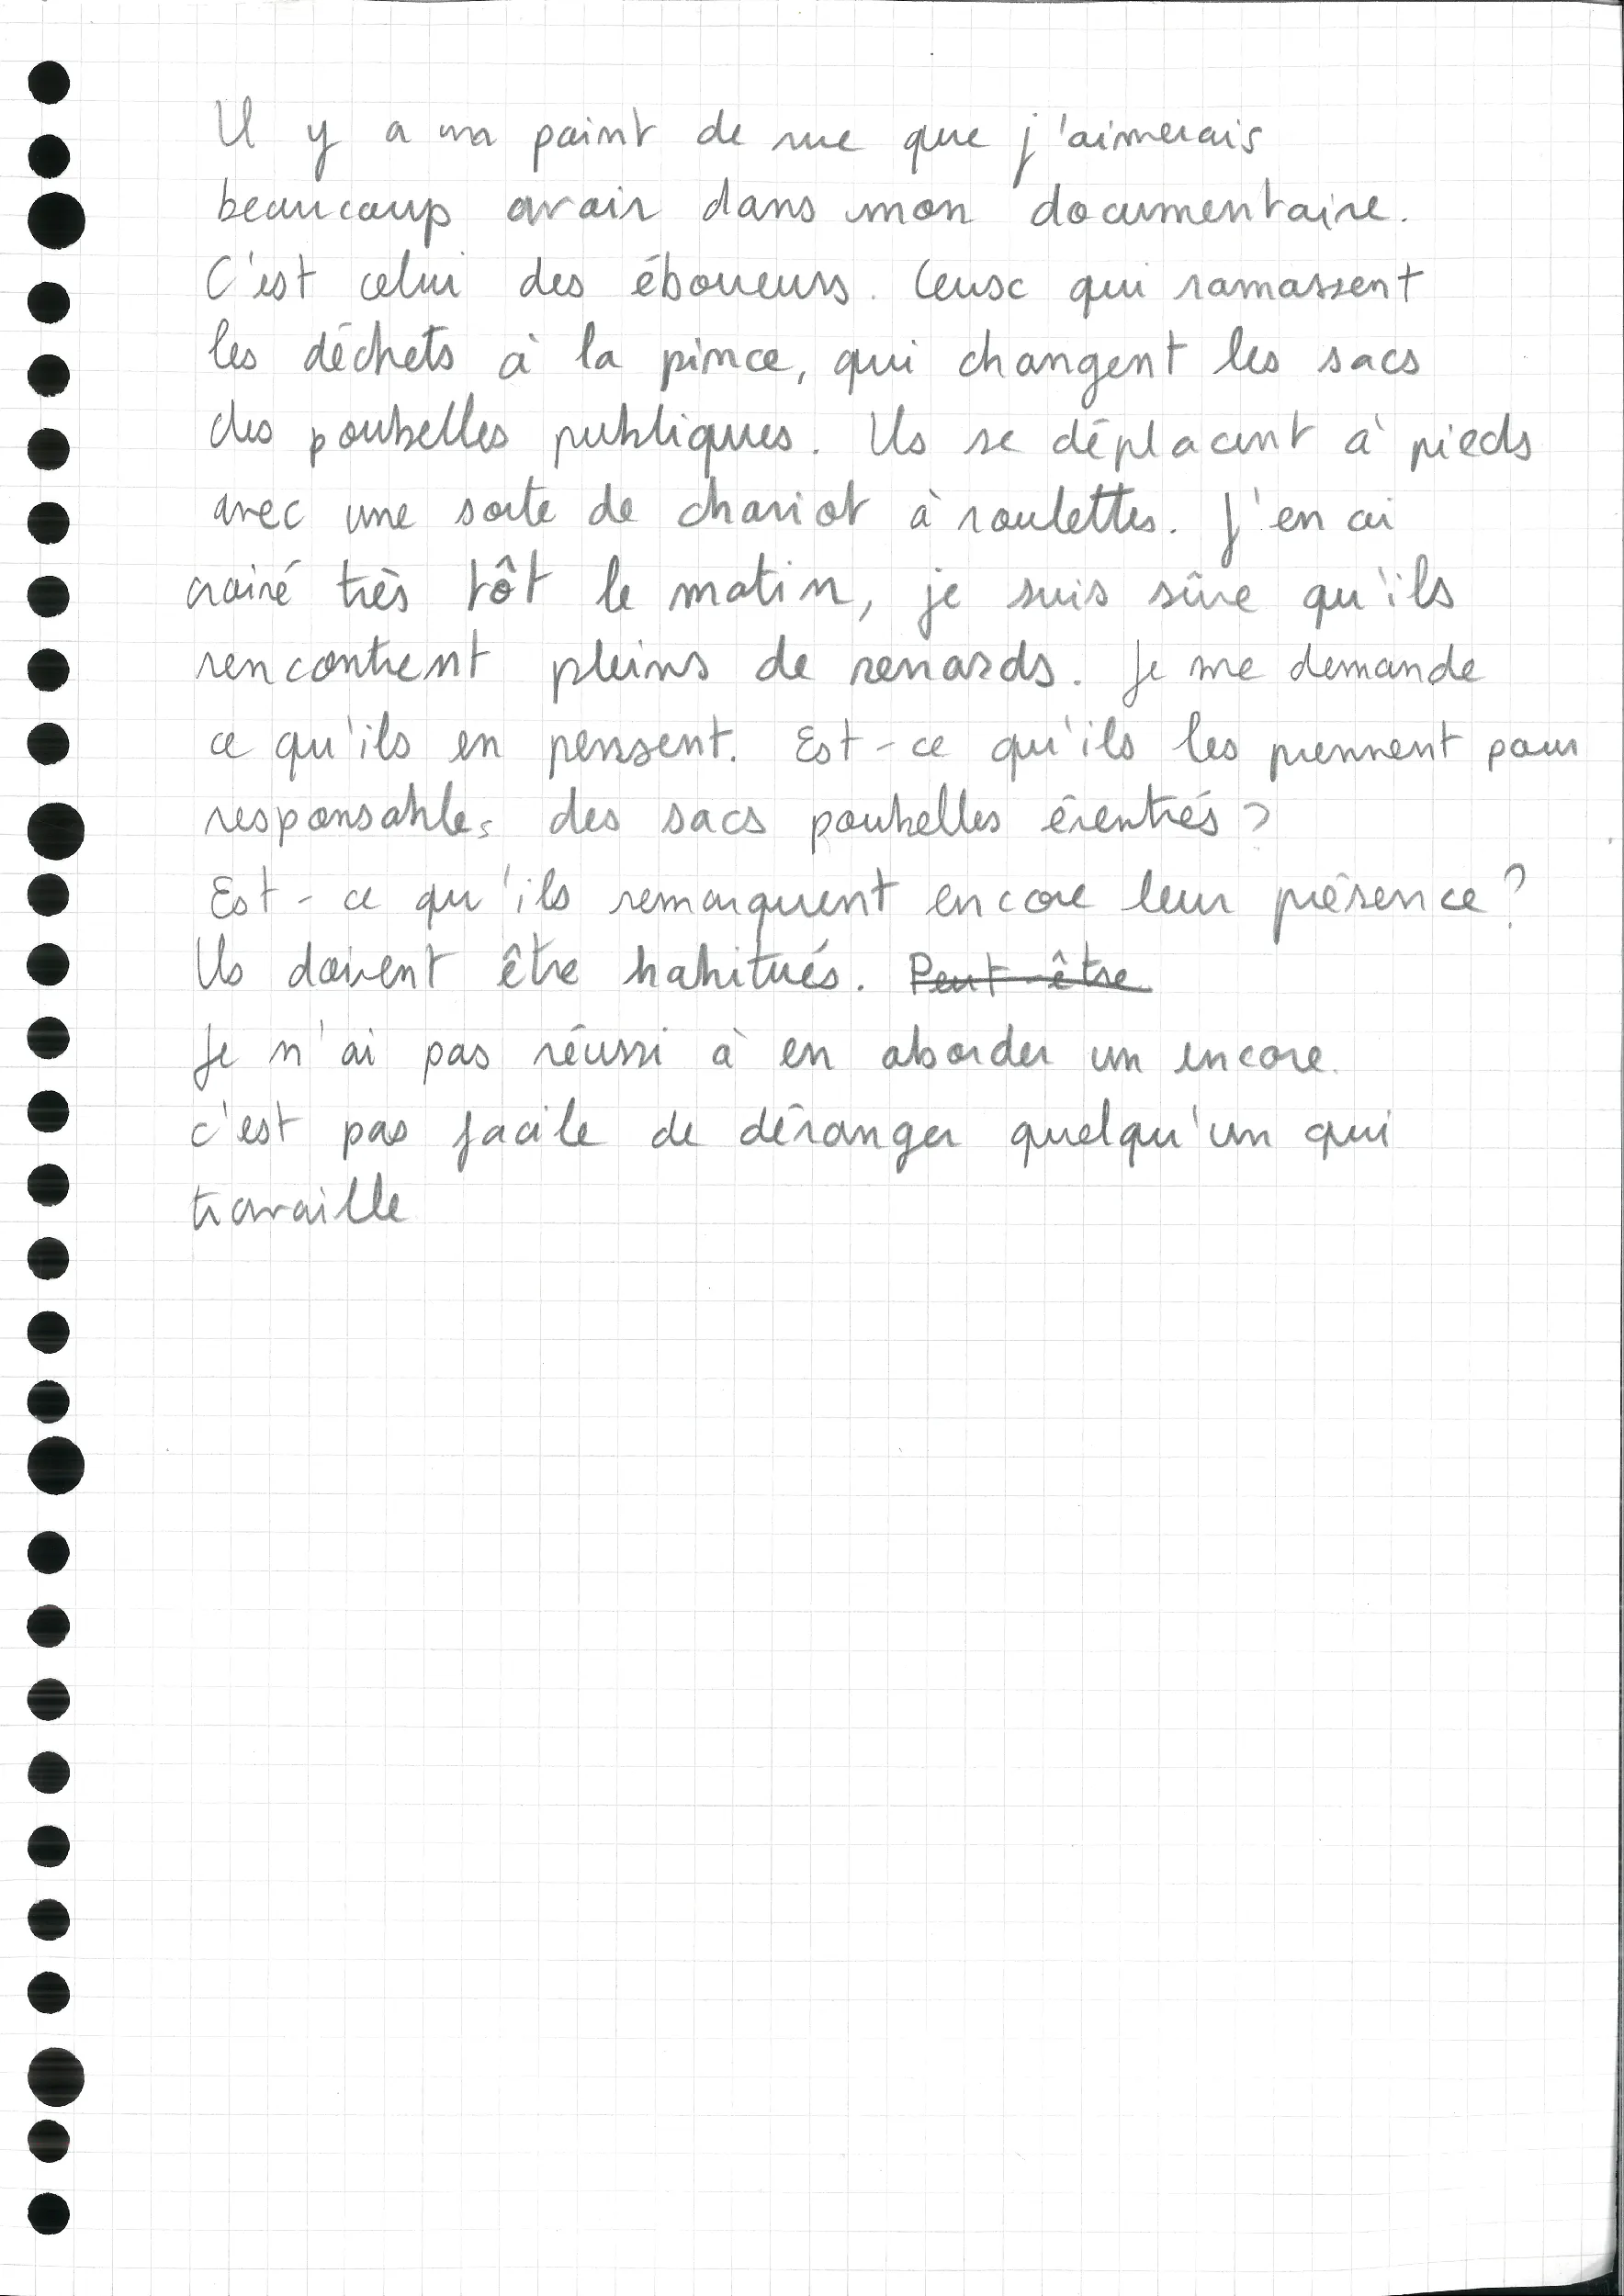 Il y a un point de vue que j'aimerais
beaucoup avoir dans mon documentaire.
C'est celui des éboueurs. Ceux qui ramassent
les déchets à la pince, qui changent les sacs
des poubelles publiques. Ils se déplacent à pieds
avec une sorte de chariot à roulettes. J'en ai
croisé très tôt le matin, je suis sûre qu'ils
rencontrent pleins de renards. Je me demande
ce qu'ils en pensent. Est-ce qu'ils les prennent pour
responsables des sacs poubelles éventrés ?
Est-ce qu'ils remarquent encore leur présence ?
Ils doivent être habitués. Peut-être
Je n'ai pas réussi à en aborder un encore.
c'est pas facile de déranger quelqu'un qui
travaille